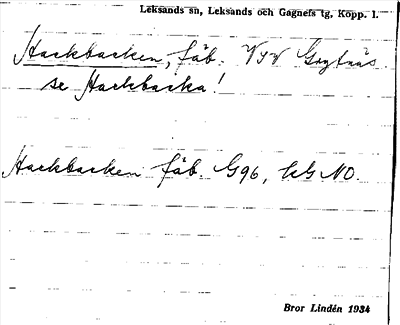 Leksands sn, Leksands och Gagnefs tg, Kopp. l.
Hackbacken, fäb. VSV Grytnäs
se Hackbacka!
Hackbacken fäb. G96, NO.
Bror Lindén 1934